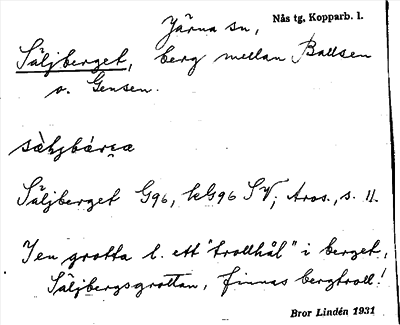 Järna sn, Nås tg, Kopparb. l.
Säljberget, berg mellan Ballsen
o. Gensen.
Säljberget G96, kG96 SV; Aros., s. 11.
I en grotta l. ett "trollhål" i berget,
Säljbergsgrottan, finnas bergtroll!
Bror Lindén 1931